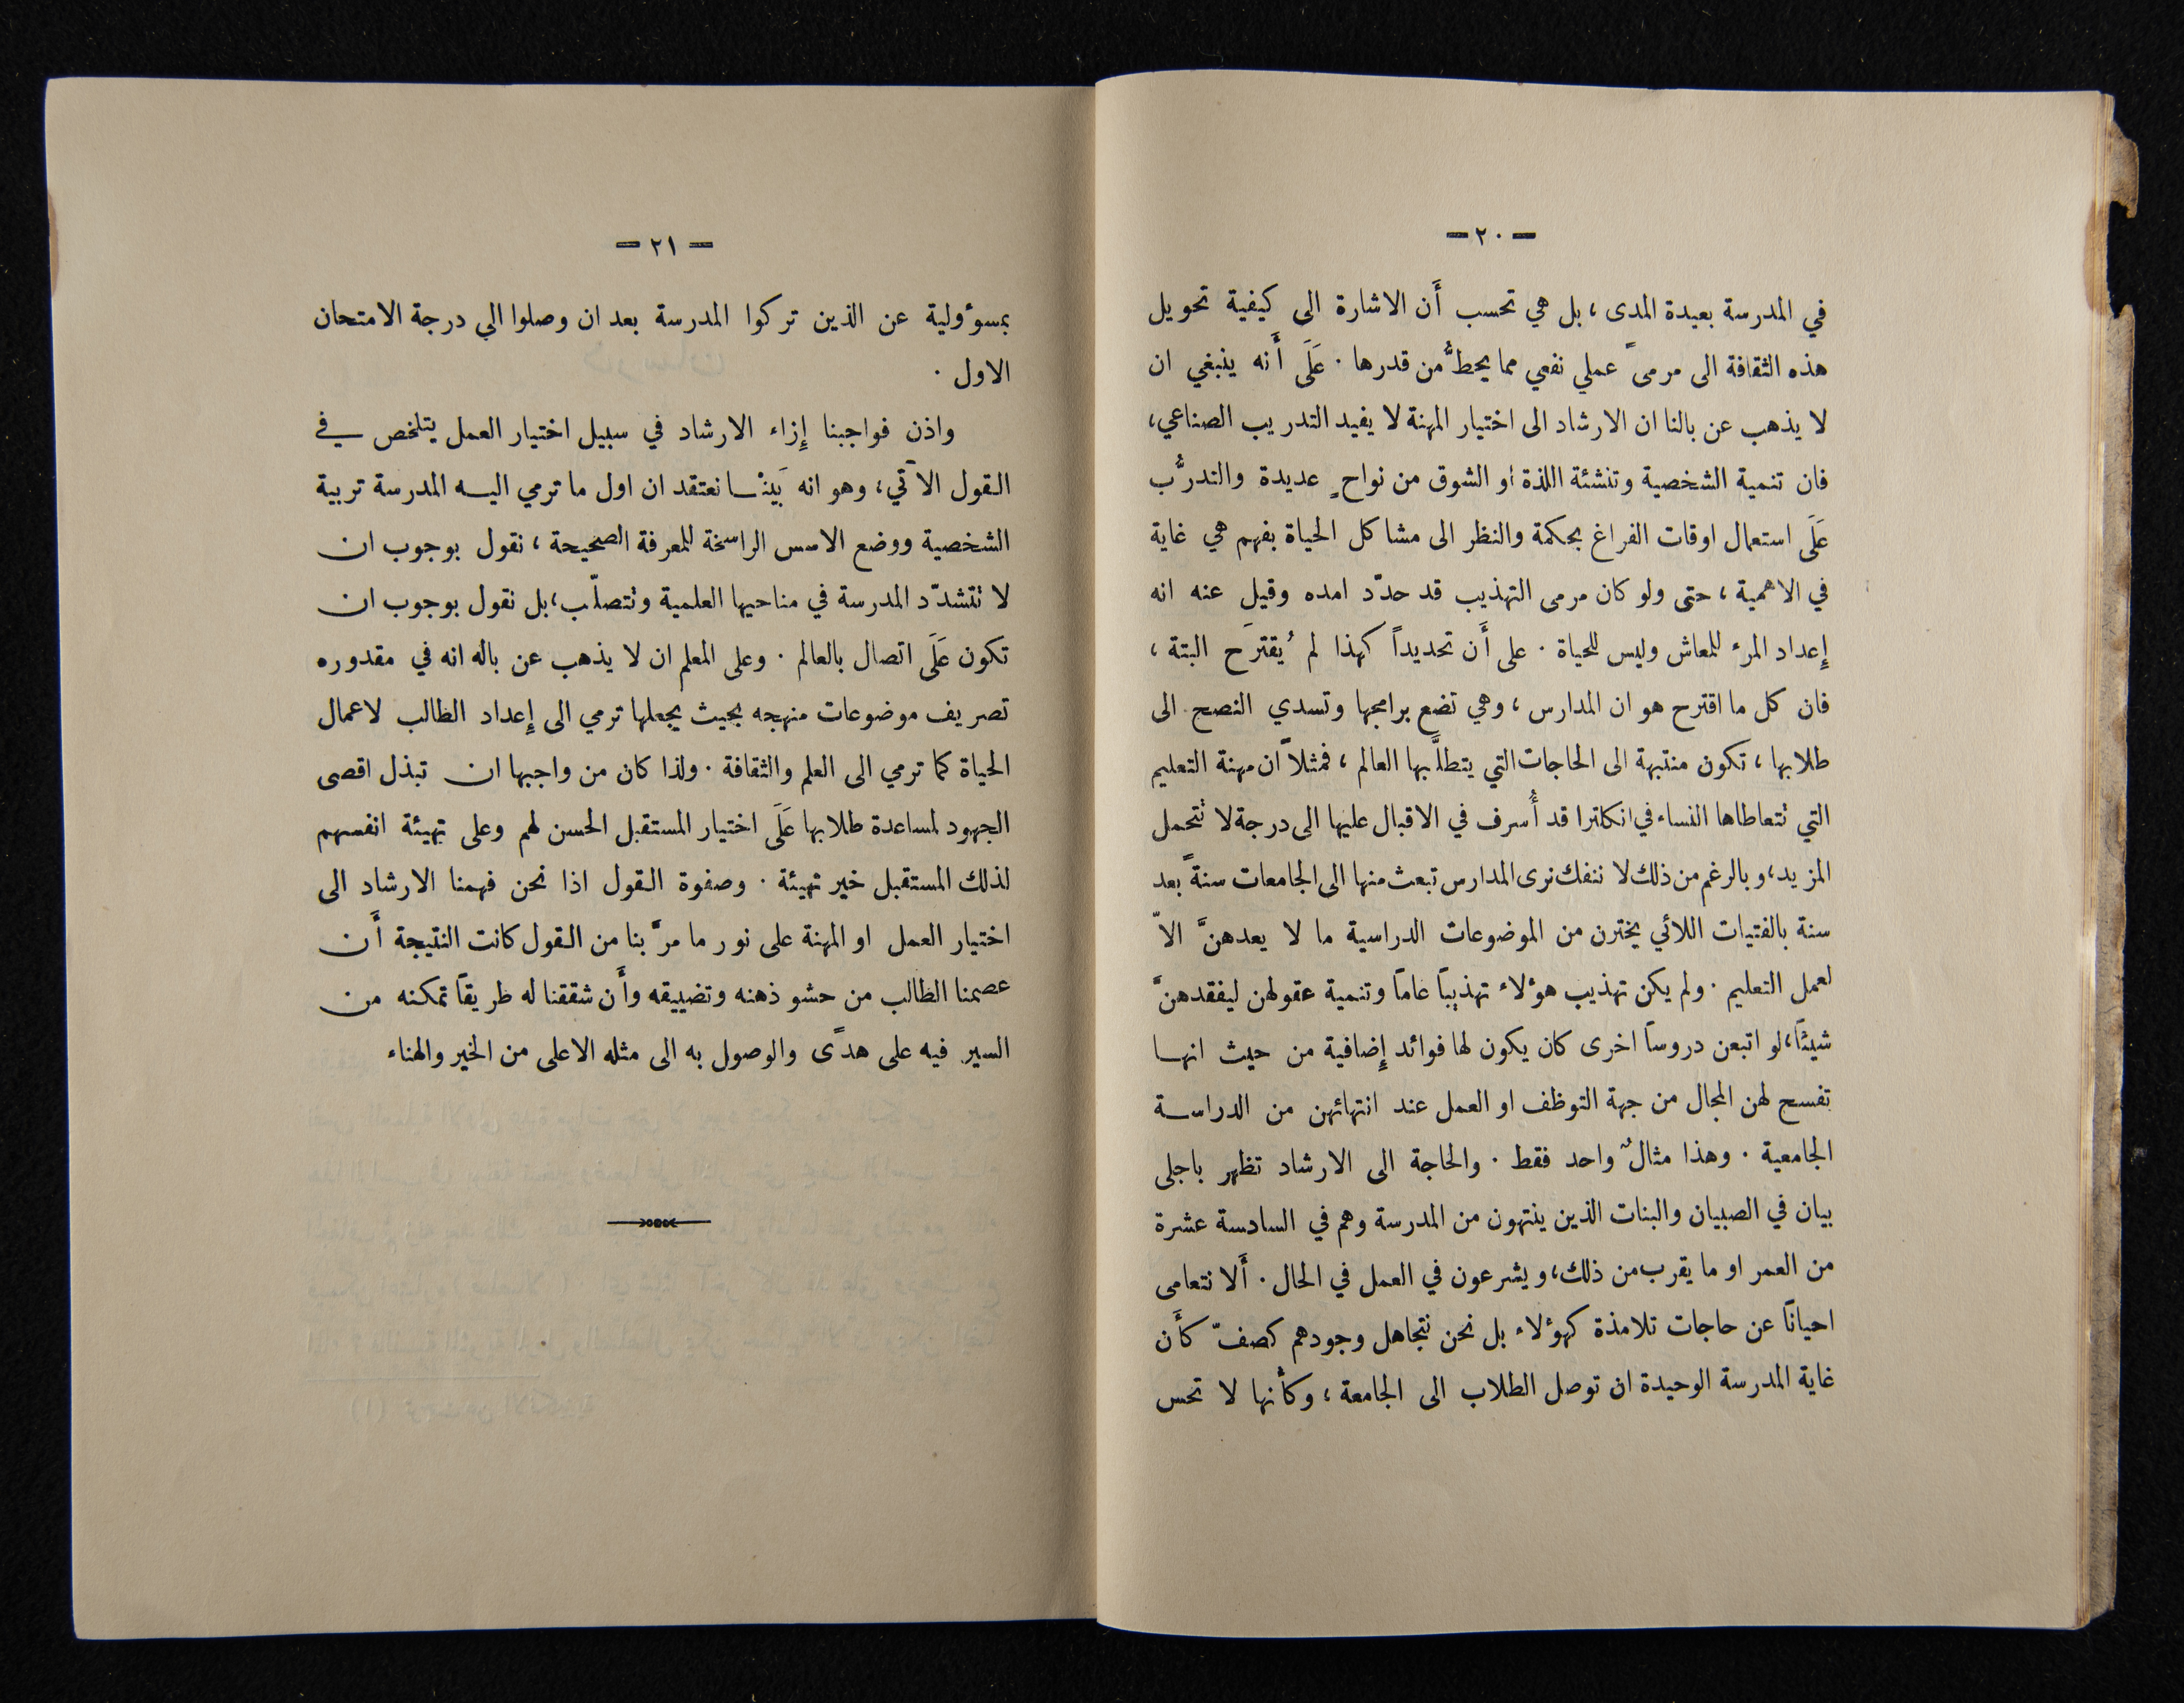 — ٢٠ —
في المدرسة بعيدة المدى، بل هي تحسب أَن الاشارة الى كيفية تحويل
هذه الثقافة الى مرمىً عملي نفعي مما يحطُّ من قدرها . عَلَى أَنه ينبغي ان
لا يذهب عن بالنا ان الارشاد الى اختيار المهنة لا يفيد التدريب الصناعي،
فان تنمية الشخصية وتنشئة اللذة او الشوق من نواحٍ عديدة والتدرُّب
عَلَى استعمال اوقات الفراغ بحكمة والنظر الى مشاكل الحياة بفهم هي غاية
في الاهمية، حتى ولو كان مرمى التهذيب قد حدّد امده وقيل عنه انه
إِعداد المرء للمعاش وليس للحياة . على أَن تحديداً كهذا لم يُقترَح البتة،
فان كل ما اقترح هو ان المدارس، وهي تضع برامجها وتسدي النصح الى
طلابها، تكون منتبهة الى الحاجات التي يتطلَّبها العالم، فمثلاً ان مهنة التعليم
التي تتعاطاها النساء في انكلترا قد أُسرف في الاقبال عليها الى درجة لا تتحمل
المزيد، وبالرغم من ذلك لا ننفك نرى المدارس تبعث منها الى الجامعات سنةً بعد
سنة بالفتيات اللائي يخترن من الموضوعات الدراسية ما لا يعدهنَّ الاّ
لعمل التعليم . ولم يكن تهذيب هؤلاء تهذيباً عاماً وتنمية عقولهن ليفقدهنَّ
شيئاً، لو اتبعن دروساً اخرى كان يكون لها فوائد إِضافية من حيث انها
تفسح لهن المجال من جهة التوظف او العمل عند انتهائهن من الدراسة
الجامعية . وهذا مثالٌ واحد فقط . والحاجة الى الارشاد تظهر باجلى
بيان في الصبيان والبنات الذين ينتهون من المدرسة وهم في السادسة عشرة
من العمر او ما يقرب من ذلك، ويشرعون في العمل في الحال . أَلا نتعامى
احياناً عن حاجات تلامذة كهؤلاء بل نحن نتجاهل وجودهم كصفّ كأَن
غاية المدرسة الوحيدة ان توصل الطلاب الى الجامعة، وكأنها لا تحس
— ٢١ —
بمسؤولية عن الذين تركوا المدرسة بعد ان وصلوا الي درجة الامتحان
الاول .
واذن فواجبنا إِزاء الارشاد في سبيل اختيار العمل يتلخص في
القول الآتي، وهو انه بَينْا نعتقد ان اول ما ترمي اليه المدرسة تربية
الشخصية ووضع الاسس الراسخة للمعرفة الصحيحة، نقول بوجوب ان
لا تتشدّد المدرسة في مناحيها العلمية وتتصلّب، بل نقول بوجوب ان
تكون عَلَى اتصال بالعالم . وعلى المعلم ان لا يذهب عن باله انه في مقدوره
تصريف موضوعات منهجه بحيث يجعلها ترمي الى إِعداد الطالب لاعمال
الحياة كما ترمي الى العلم والثقافة . ولذا كان من واجبها ان تبذل اقصى
الجهود لمساعدة طلابها عَلَى اختيار المستقبل الحسن لهم وعلى تهيئة انفسهم
لذلك المستقبل خير تهيئة . وصفوة القول اذا نحن فهمنا الارشاد الى
اختيار العمل او المهنة على نور ما مرَّ بنا من القول كانت النتيجة أَن
عصمنا الطالب من حشو ذهنه وتضييقه وأَن شققنا له طريقاً تمكنه من
السير فيه على هدًى والوصول به الى مثله الاعلى من الخير والهناء